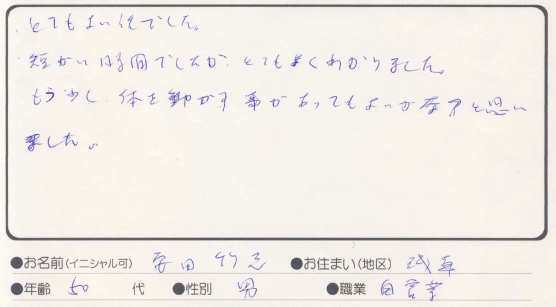 とてもよい位でした。
短かい時間でしたが、とてもよくわかりました。
もう少し、体を動かす事があってもよいかなアと思い
ました。
●お名前(イニシャル可) 安田 ●お住まい(地区)
●年齢 50 代 ●性別 男 ●職業 自営業